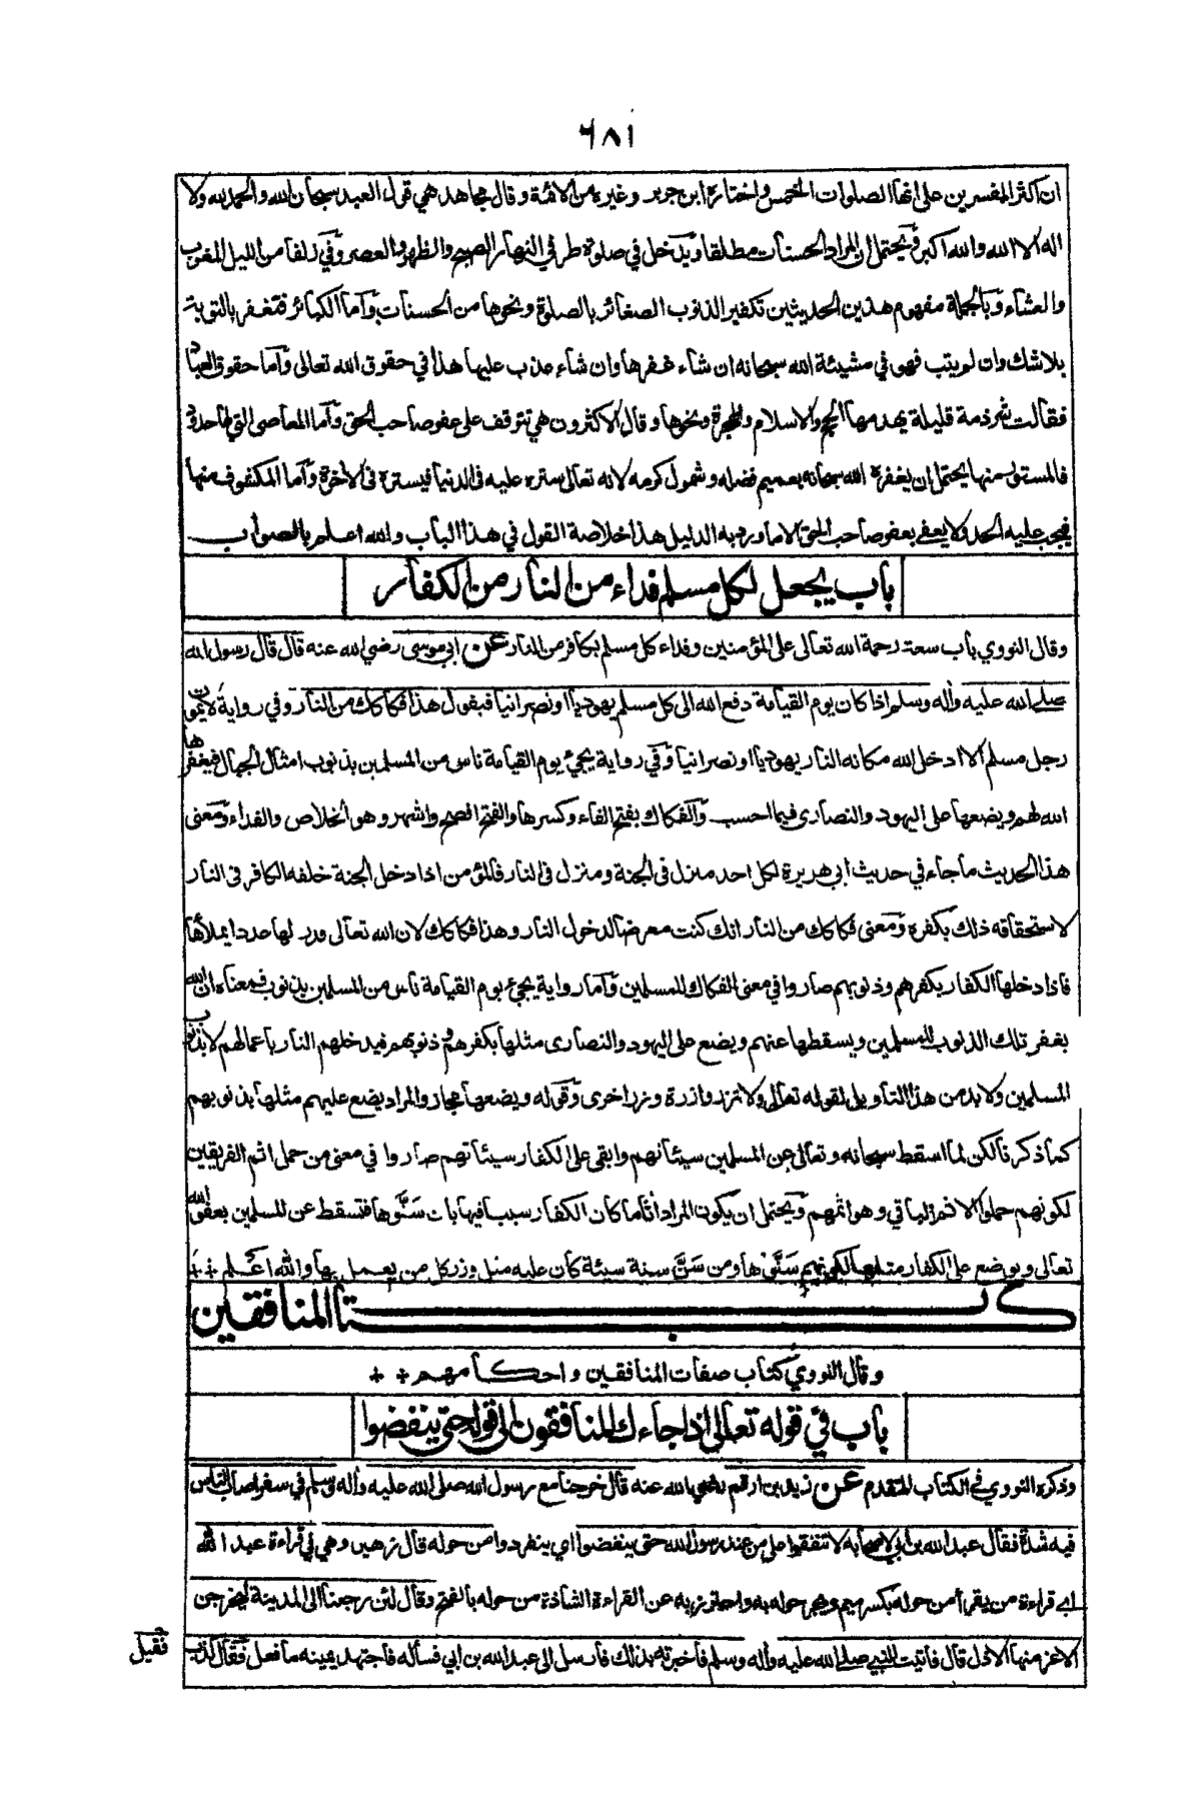 ٦٨١
ان اكثر المفسرين على انها الصلوات الخمس واختاره ابن جرير وغيره من الائمة وقال مجاهد هي قول العبد سبحان الله والحمد لله ولا
اله الا الله والله اكبر ويحتمل ان المراد الحسنات مطلقا ويدخل في صلوة طرفي النهار الصبح والظهر والعصر وفي زلفا من الليل المغرب
والعشاء وبالجملة مفهوم هذين الحديثين تكفير الذنوب الصغائر بالصلوة ونحوها من الحسنات وآما الكبائر فتغفر بالتوبة
بلا شك وان لم يتب فهو في مشيئة الله سبحانه ان شاء غفرها وان شاء عذب عليها هذا في حقوق الله تعالى وآما حقوق العباد
فقالت شرذمة قليلة يهدمها الحج والاسلام والهجرة ونحوها وقال الاكثرون هي تتوقف على عفو صاحب الحق وآما المعاصى التي لها حدود
فالمستوى منها يحتمل ان يغفره الله سبحانه بعميم فضله وشمول كرمه لانه تعالى ستره عليه فى الدنيا فيستره فى الآخرة وآما المكشوف منها
فيجب عليه الحد ولا يعفى بعفو صاحب الحق الا ما ورد به الدليل هذا خلاصة القول في هذا الباب والله اعلم بالصواب
باب يجعل لكل مسلم فداء من النار من الكفار
وقال النووي باب سعة رحمة الله تعالى على المؤمنين وفداء كل مسلم بكافر من النار عن ابي موسى رضي الله عنه قال قال رسول الله
صلى الله عليه وآله وسلم اذا كان يوم القيامة دفع الله الى كل مسلم يهوديا او نصرانيا فيقول هذا فكاكك من النار وفي رواية لا يموت
رجل مسلم الا ادخل الله مكانه النار يهوديا او نصرانيا وفي رواية يجيء يوم القيامة ناس من المسلمين بذنوب امثال الجبال فيغفرها
الله لهم ويضعها على اليهود والنصارى فيما احسب والفكاك بفتح الفاء وكسرها والفتح افصح واشهر وهو الخلاص والفداء ومعنى
هذا الحديث ما جاء في حديث ابي هريرة لكل احد منزل فى الجنة ومنزل فى النار فالمؤمن اذا دخل الجنة خلفه الكافر فى النار
لاستحقاقه ذلك بكفره ومعنى فكاكك من النار انك كنت معرضا لدخول النار وهذا فكاكك لان الله تعالى قدر لها عددا يملأها
فاذا دخلها الكفار بكفرهم وذنوبهم صاروا في معنى الفكاك للمسلمين وآما رواية يجيء يوم القيامة ناس من المسلمين بذنوب فمعناه ان الله
يغفر تلك الذنوب للمسلمين ويسقطها عنهم ويضع على اليهود والنصارى مثلها بكفرهم وذنوبهم فيدخلهم النار باعمالهم لا بذنوب
المسلمين ولا بد من هذا التاويل لقوله تعالى ولا تزر وازرة وزر اخرى وقوله ويضعها مجاز والمراد يضع عليهم مثلها بذنوبهم
كما ذكرنا لكن لما اسقط سبحانه وتعالى عن المسلمين سيئاتهم وابقى على الكفار سيئاتهم صاروا في معنى من حمل اثم الفريقين
لكونهم حملوا الاثم الباقي وهو اثمهم ويحتمل ان يكون المراد اثاما كان الكفار سببا فيها بان سَنُّوها فتسقط عن المسلمين بعفو الله
تعالى ويوضع على الكفار مثلها لكونهم سَنُّوها ومن سَنَّ سنة سيئة كان عليه مثل وزر كل من يعمل بها والله اعلم
كتاب المنافقين
وقال النووي كتاب صفات المنافقين واحكامهم
باب في قوله تعالى اذا جاءك المنافقون الى قوله حتى ينفضوا
وذكره النووي في الكتاب المتقدم عن زيد بن ارقم رضي الله عنه قال خرجنا مع رسول الله صلى الله عليه وآله وسلم في سفر اصاب الناس
فيه شدة فقال عبد الله بن ابي لاصحابه لا تنفقوا على من عند رسول الله حتى ينفضوا اي ينفردوا من حوله قال زهير وهي في قراءة عبد الله
اي قراءة من يقرأ من حوله بكسر ميم وجر حوله به واحترز به عن القراءة الشاذة من حوله بالفتح وقال لئن رجعنا الى المدينة ليخرجن
الاعز منها الاذل قال فاتيت النبي صلى الله عليه وآله وسلم فاخبرته بذلك فارسل الى عبد الله بن ابي فسأله فاجتهد يمينه ما فعل فقال كذب
فقيل